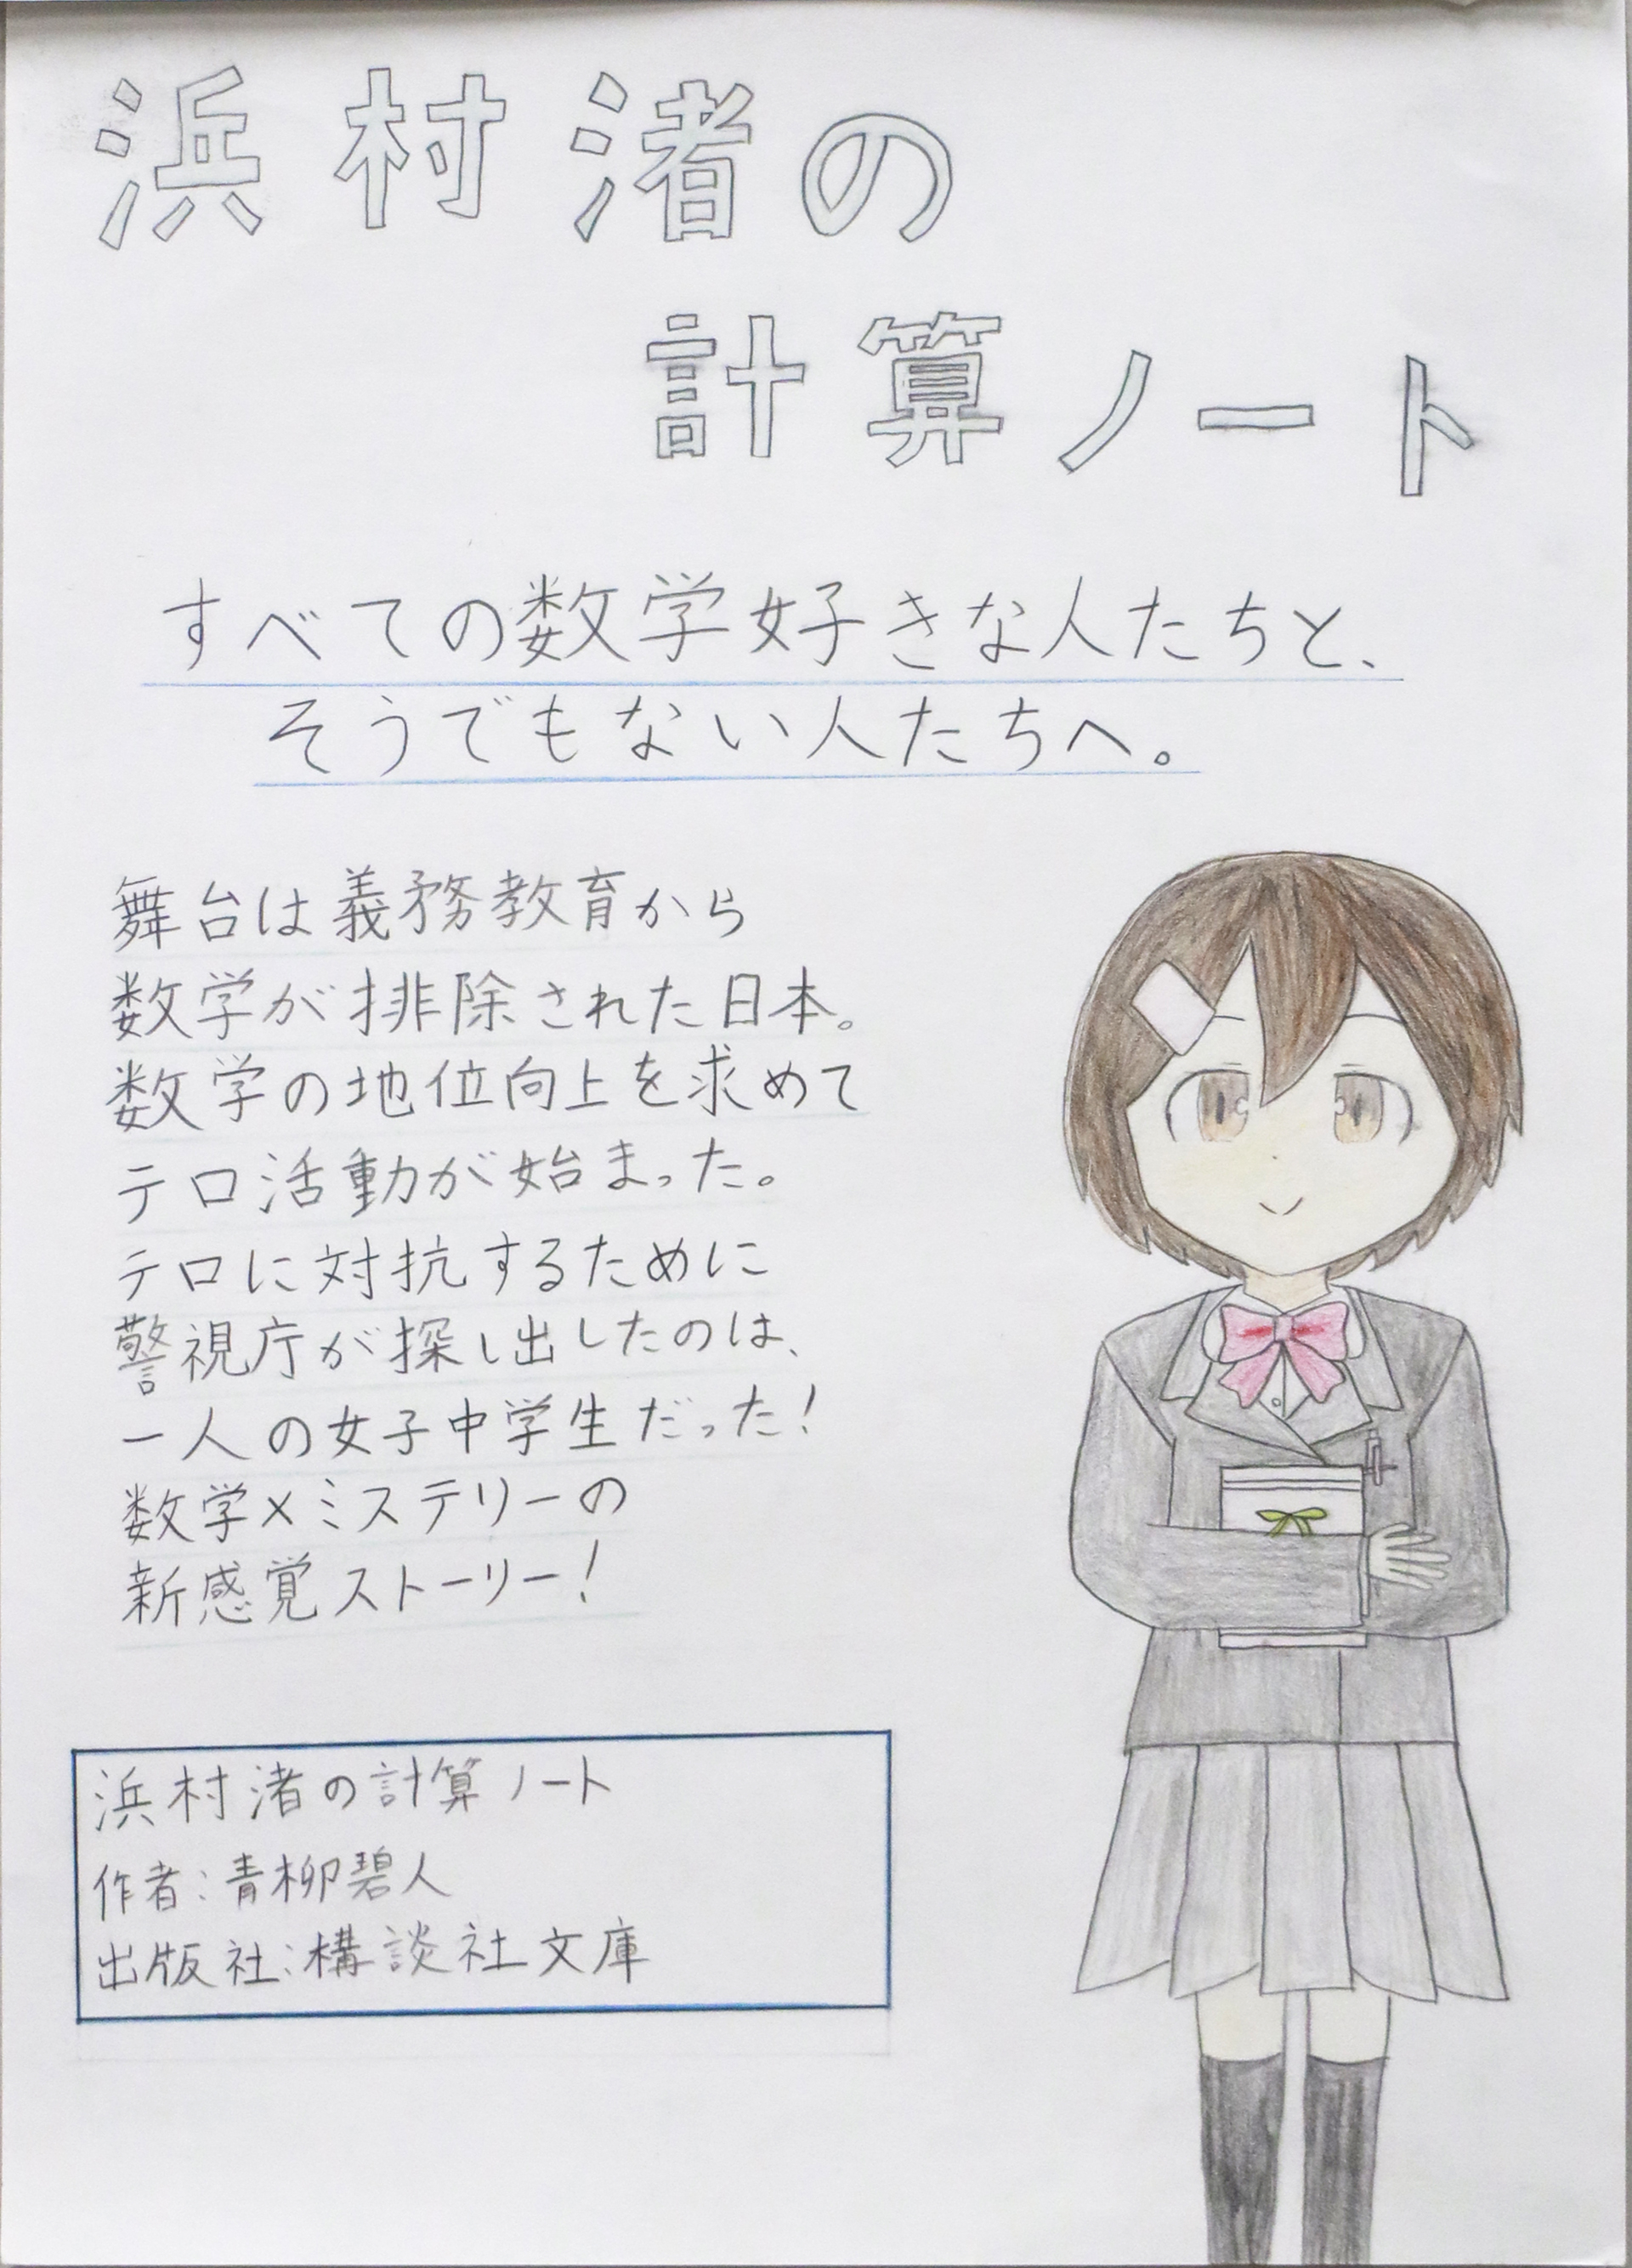 浜村渚の
計算ノート
すべての数学好きな人たちと、
そうでもない人たちへ。
舞台は義務教育から
数学が排除された日本。
数学の地位向上を求めて
テロ活動が始まった。
テロに対抗するために
警視庁が探し出したのは、
一人の女子中学生だった!
数学×ミステリーの
新感覚ストーリー!
浜村渚の計算ノート
作者:青柳碧人
出版社:構談社文庫